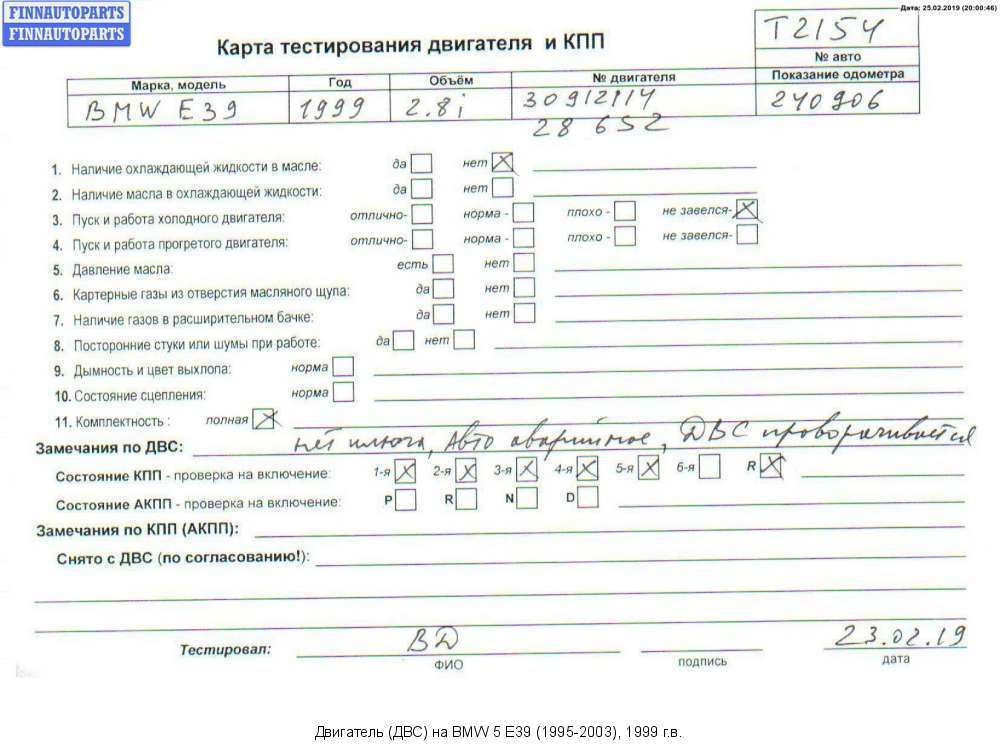 FINNAUTOPARTS
FINNAUTOPARTS
Дата: 25.02.2019 (20:00:46)
Карта тестирования двигателя и КПП
T2154
№ авто
Марка, модель Год Объём № двигателя Показание одометра
BMW E39 1999 2.8i 30912114 240906
28 6S2
1. Наличие охлаждающей жидкости в масле: да нет X
2. Наличие масла в охлаждающей жидкости: да нет
3. Пуск и работа холодного двигателя: отлично- норма - плохо - не завелся- X
4. Пуск и работа прогретого двигателя: отлично- норма - плохо - не завелся-
5. Давление масла: есть нет
6. Картерные газы из отверстия масляного щупа: да нет
7. Наличие газов в расширительном бачке: да нет
8. Посторонние стуки или шумы при работе: да нет
9. Дымность и цвет выхлопа: норма
10. Состояние сцепления: норма
11. Комплектность : полная X
Замечания по ДВС: нет ключа, Авто аварийное, ДВС проворачивается
Состояние КПП - проверка на включение: 1-я X 2-я X 3-я X 4-я X 5-я X 6-я R X
Состояние АКПП - проверка на включение: P R N D
Замечания по КПП (АКПП):
Снято с ДВС (по согласованию!):
Тестировал: ВД 23.02.19
ФИО подпись дата
Двигатель (ДВС) на BMW 5 E39 (1995-2003), 1999 г.в.